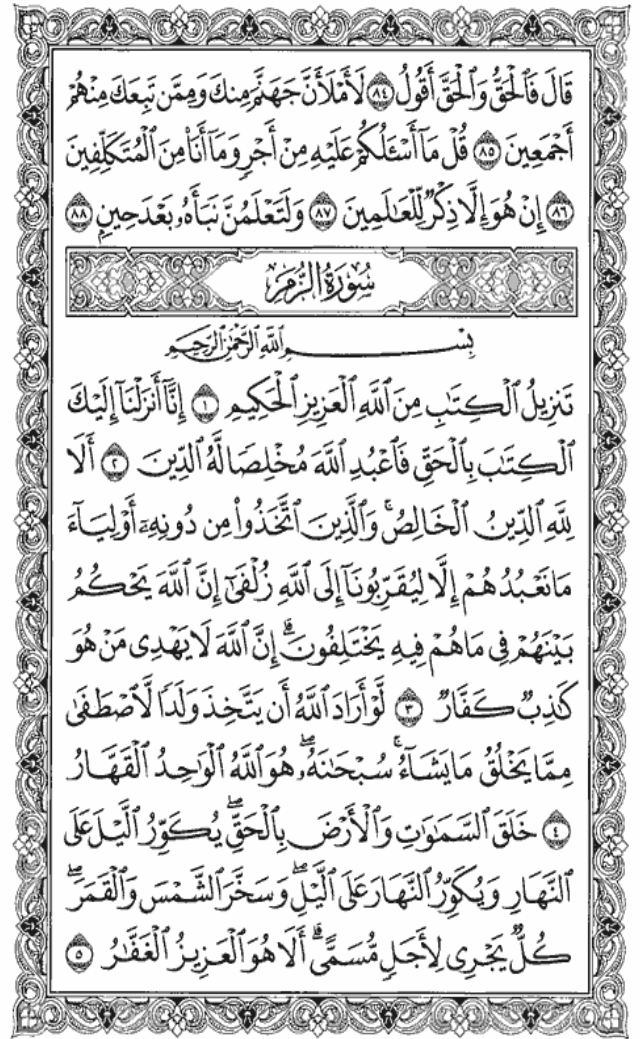 قَالَ فَٱلْحَقُّ وَٱلْحَقَّ أَقُولُ ۝٨٤ لَأَمْلَأَنَّ جَهَنَّمَ مِنكَ وَمِمَّن تَبِعَكَ مِنْهُمْ
أَجْمَعِينَ ۝٨٥ قُلْ مَآ أَسْـَٔلُكُمْ عَلَيْهِ مِنْ أَجْرٍ وَمَآ أَنَا۠ مِنَ ٱلْمُتَكَلِّفِينَ
۝٨٦ إِنْ هُوَ إِلَّا ذِكْرٌ لِّلْعَـٰلَمِينَ ۝٨٧ وَلَتَعْلَمُنَّ نَبَأَهُۥ بَعْدَ حِينٍ ۝٨٨
سُورَةُ الزُّمَرِ
بِسْمِ ٱللَّهِ ٱلرَّحْمَـٰنِ ٱلرَّحِيمِ
تَنزِيلُ ٱلْكِتَـٰبِ مِنَ ٱللَّهِ ٱلْعَزِيزِ ٱلْحَكِيمِ ۝١ إِنَّآ أَنزَلْنَآ إِلَيْكَ
ٱلْكِتَـٰبَ بِٱلْحَقِّ فَٱعْبُدِ ٱللَّهَ مُخْلِصًا لَّهُ ٱلدِّينَ ۝٢ أَلَا
لِلَّهِ ٱلدِّينُ ٱلْخَالِصُ ۚ وَٱلَّذِينَ ٱتَّخَذُوا۟ مِن دُونِهِۦٓ أَوْلِيَآءَ
مَا نَعْبُدُهُمْ إِلَّا لِيُقَرِّبُونَآ إِلَى ٱللَّهِ زُلْفَىٰٓ إِنَّ ٱللَّهَ يَحْكُمُ
بَيْنَهُمْ فِى مَا هُمْ فِيهِ يَخْتَلِفُونَ ۗ إِنَّ ٱللَّهَ لَا يَهْدِى مَنْ هُوَ
كَـٰذِبٌ كَفَّارٌ ۝٣ لَّوْ أَرَادَ ٱللَّهُ أَن يَتَّخِذَ وَلَدًا لَّٱصْطَفَىٰ
مِمَّا يَخْلُقُ مَا يَشَآءُ ۚ سُبْحَـٰنَهُۥ ۖ هُوَ ٱللَّهُ ٱلْوَٰحِدُ ٱلْقَهَّارُ
۝٤ خَلَقَ ٱلسَّمَـٰوَٰتِ وَٱلْأَرْضَ بِٱلْحَقِّ ۖ يُكَوِّرُ ٱلَّيْلَ عَلَى
ٱلنَّهَارِ وَيُكَوِّرُ ٱلنَّهَارَ عَلَى ٱلَّيْلِ ۖ وَسَخَّرَ ٱلشَّمْسَ وَٱلْقَمَرَ ۖ
كُلٌّ يَجْرِى لِأَجَلٍ مُّسَمًّى ۗ أَلَا هُوَ ٱلْعَزِيزُ ٱلْغَفَّـٰرُ ۝٥